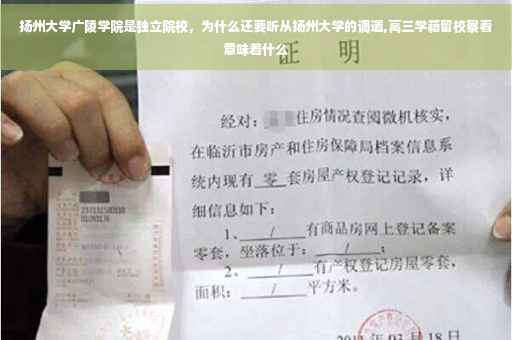 扬州大学广陵学院是独立院校，为什么还要听从扬州大学的调遣,高三学籍留校察看
意味着什么
证 明
经对：住房情况查阅微机核实，
在临沂市房产和住房保障局档案信息系
统内现有 零 套房屋产权登记记录，详
细信息如下：
1、 / 有商品房网上登记备案
零套，坐落位于： / ；
2、 / 有产权登记房屋零套，
面积： / 平方米。
月 18 日